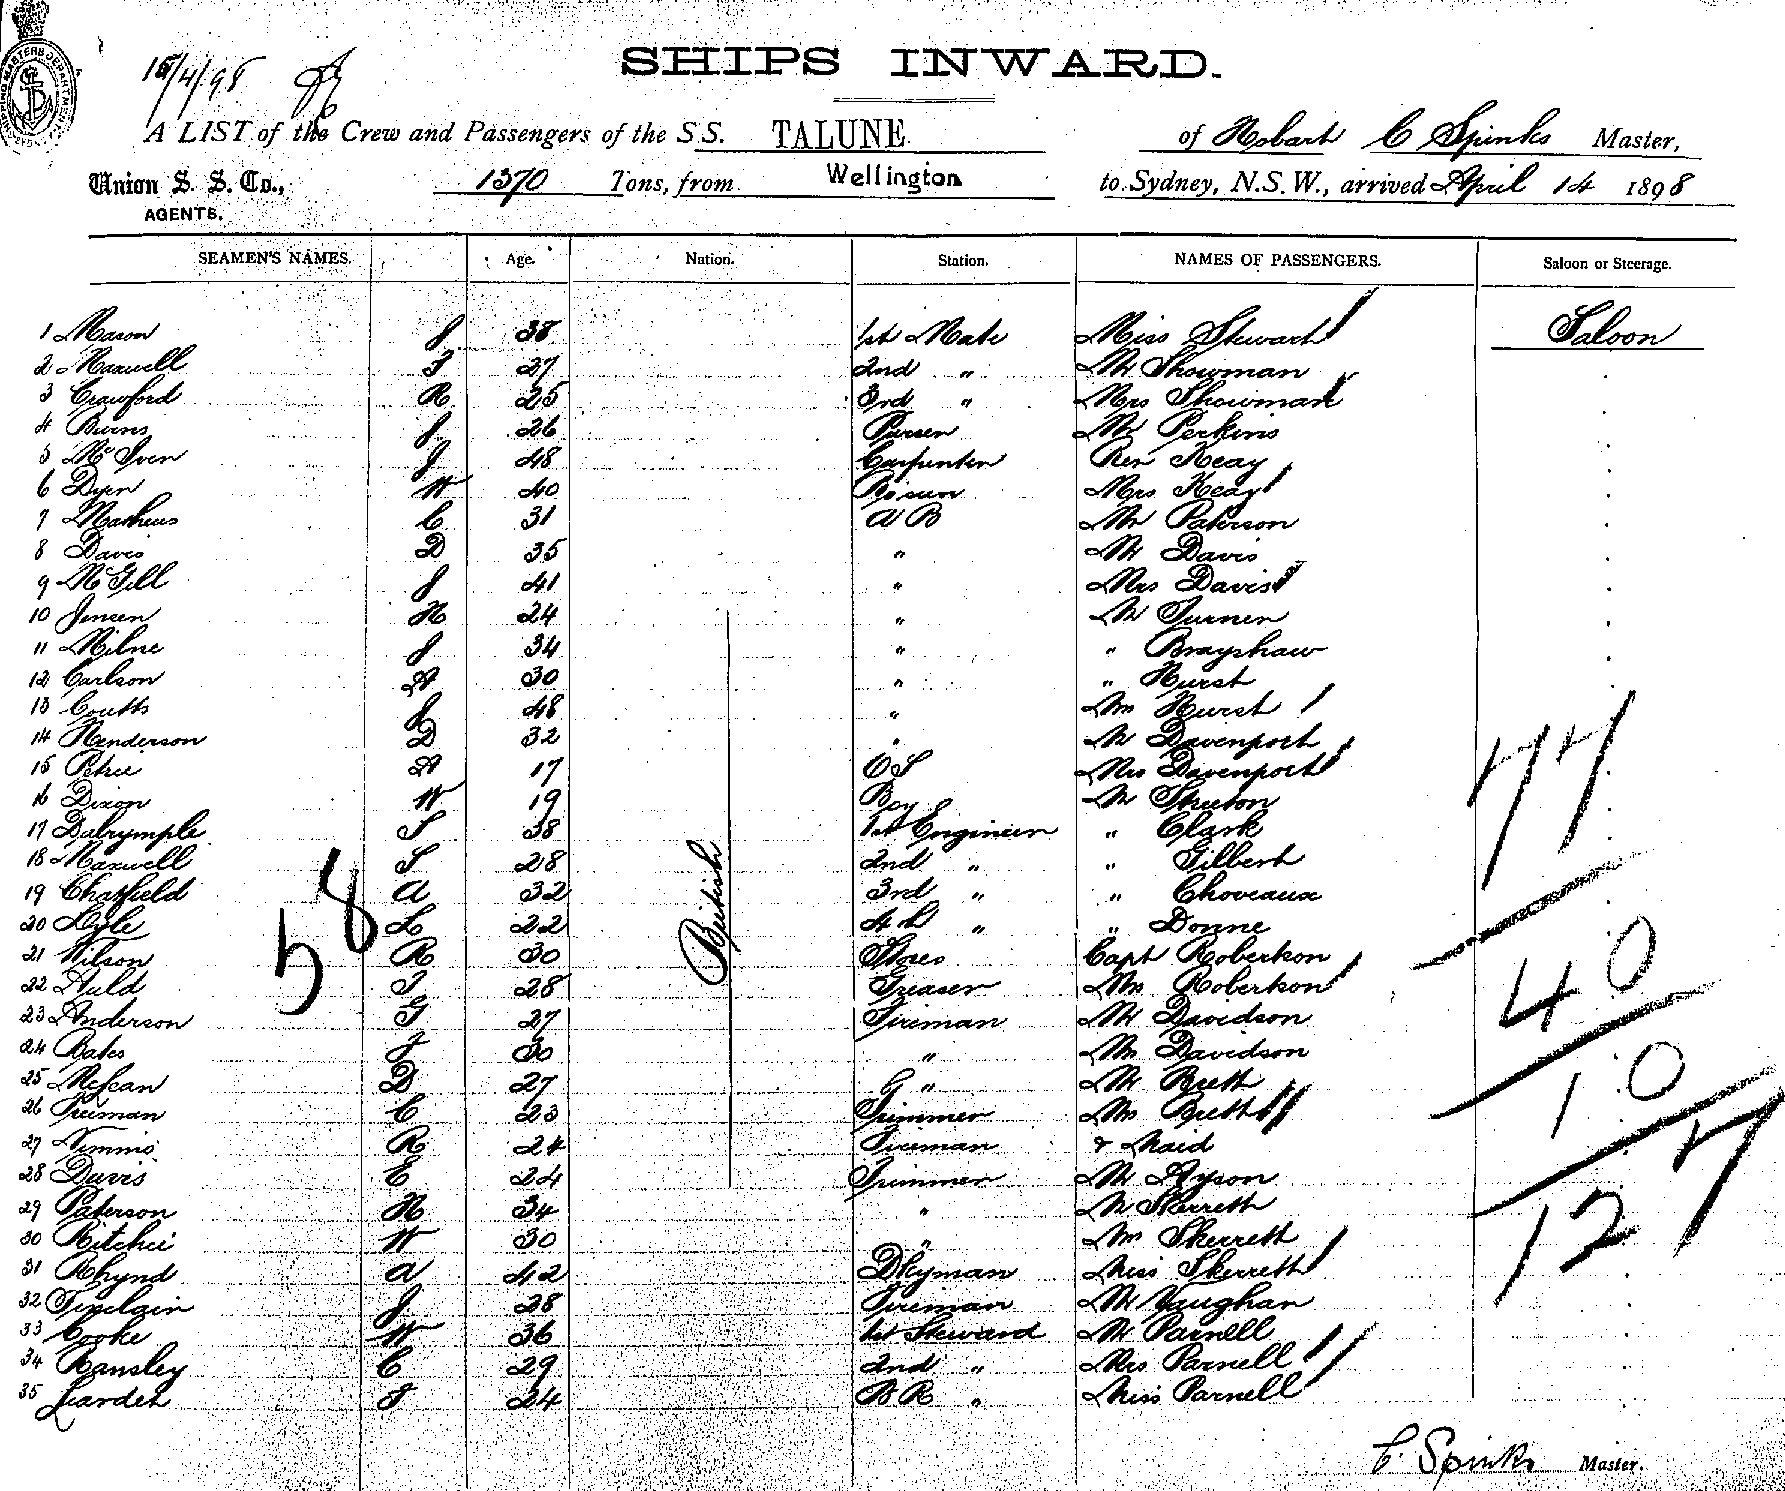 15/4/98
SHIPS INWARD.
A LIST of the Crew and Passengers of the S.S. TALUNE of Hobart C Spinks Master,
Union S. S. Co., 1370 Tons, from Wellington to Sydney, N.S.W., arrived April 14 1898
AGENTS.
SEAMEN'S NAMES. Age. Nation. Station. NAMES OF PASSENGERS. Saloon or Steerage.
1 Mason J 38 1st Mate Miss Stewart Saloon
2 Maxwell T 27 2nd " Mr Showman
3 Crawford R 25 3rd " Mrs Showman
4 Burns J 26 Purser Mr Perkins
5 J 48 Carpenter Rev Keay
6 Dyer W 40 Bosun Mrs Keay
7 Mathews C 31 A B Mr Paterson
8 Davis D 35 " Mr Davis
9 McGill J 41 " Mrs Davis
10 Jensen H 24 " Mr Turner
11 Milne J 34 " " Brayshaw
12 Carlson A 30 " " Hurst
13 Coutts J 48 " Mrs Hurst
14 Henderson D 32 " Mr Davenport
15 Petrie A 17 O S Mrs Davenport
16 Dixon W 19 Boy Mr
17 Dalrymple S 38 1st Engineer " Clark
18 Maxwell S 28 2nd " " Gilbert
19 Chatfield A 32 3rd " " Choveaux
20 Lyle L 22 4th " " Donne
21 Wilson R 30 Stores Capt Robertson
22 Auld T 28 Greaser Mrs Robertson
23 Anderson G 27 Fireman Mr Davidson
24 Bates J 30 " Mrs Davidson
25 McLean D 27 " Mr Brett
26 Freiman C 23 Trimmer Mrs Brett
27 Nimmo R 24 Fireman & Maid
28 Davis E 24 Trimmer Mr Dyson
29 Paterson H 34 " Mr Skerrett
30 Ritchie W 30 " Mrs Skerrett
31 Rhynd A 42 Dkyman Miss Skerrett
32 Sinclair J 28 Fireman Mr Vaughan
33 Cooke W 36 1st Steward Mr Parnell
34 Ransley C 29 2nd " Mrs Parnell
35 J 24 B R " Miss Parnell
British
58
77
40
10
127
C. Spinks Master.